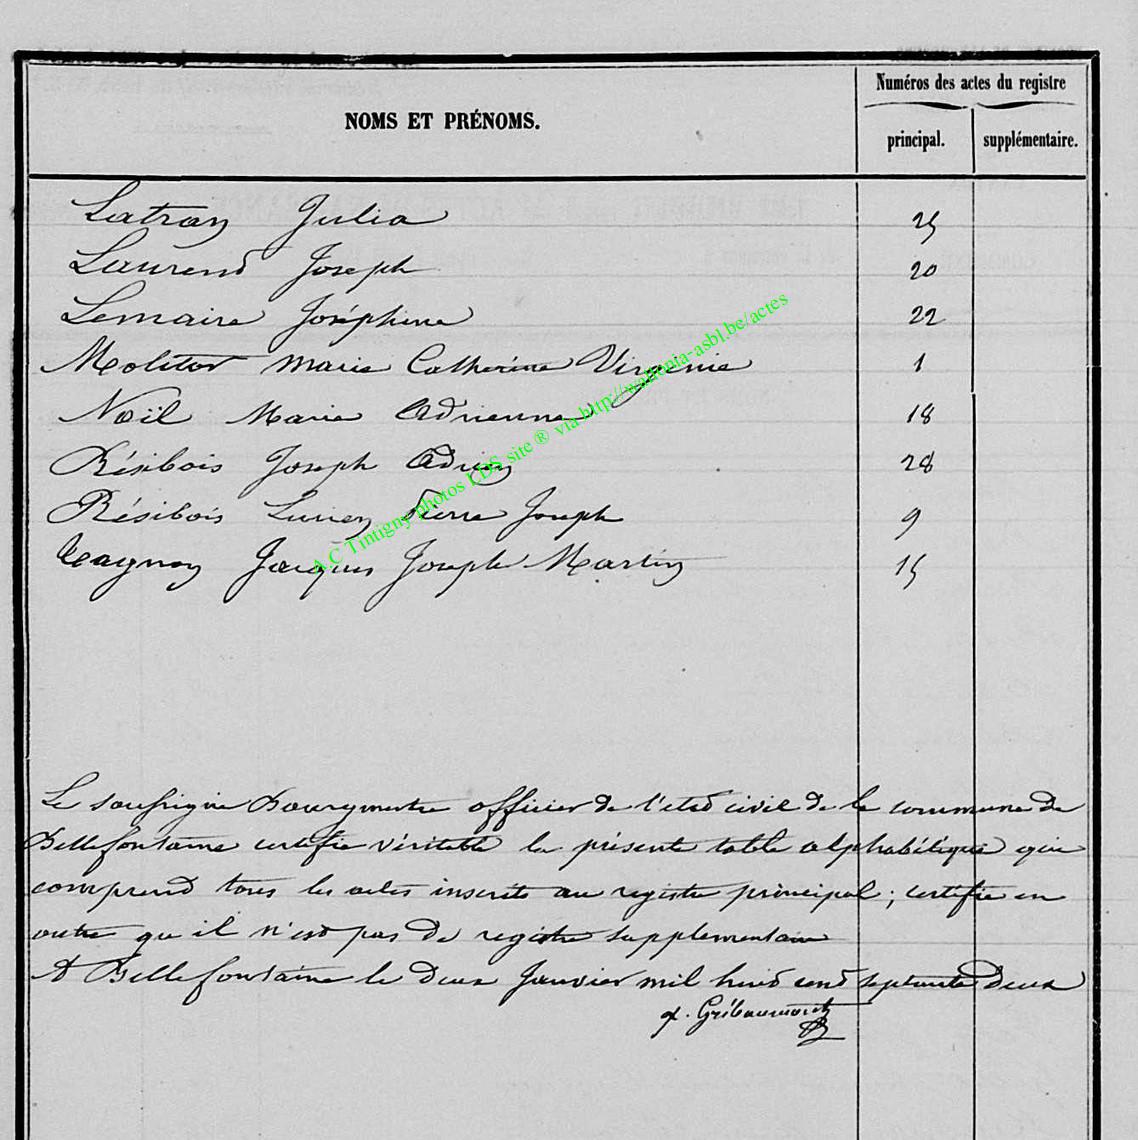 Numéros des actes du registre
NOMS ET PRÉNOMS.
principal. supplémentaire.
Latran Julia 25
Laurend Joseph 20
Lemaire Joséphine 22
Molitor Marie Catherine Virginie 1
Noël Marie Adrienne 18
Résibois Joseph Adrien 28
Résibois Lucien Pierre Joseph 9
Jacques Joseph Martin 15
A.C Tintigny photos LDS site ® via http://wallonia-asbl.be/actes
Le soussigné Bourgmestre officier de l'état civil de la commune de
Bellefontaine certifie véritable la présente table alphabétique qui
comprend tous les actes inscrits au registre principal ; certifie en
outre qu'il n'est pas de registre supplémentaire
A Bellefontaine le deux Janvier mil huit cend septante deux